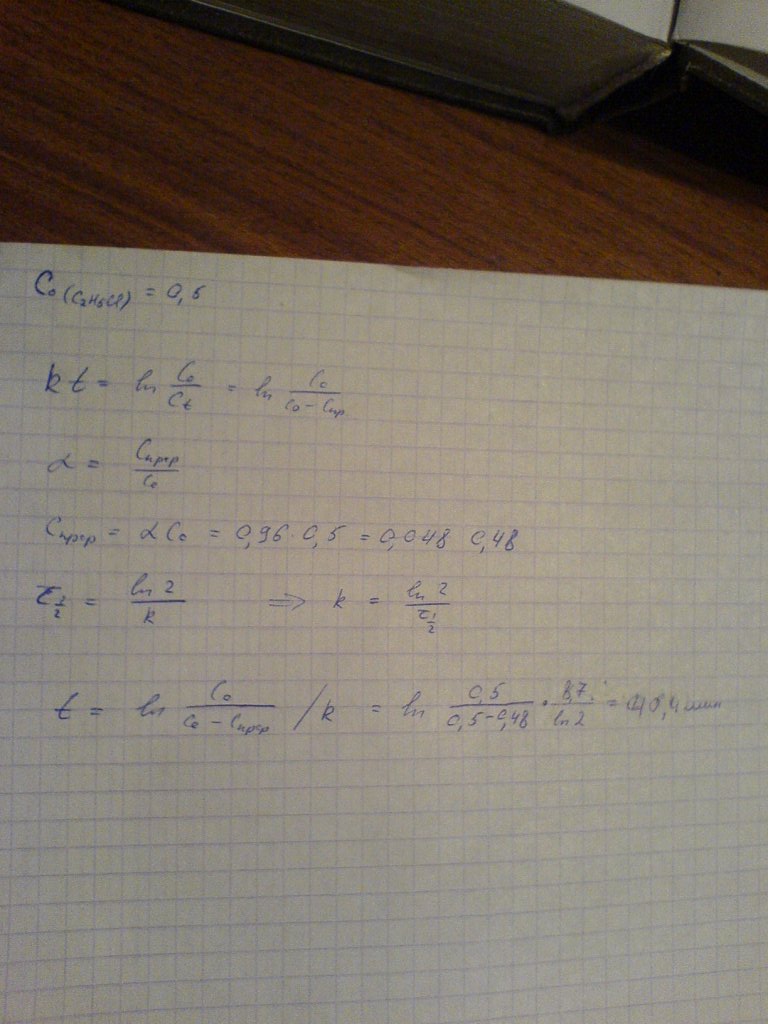 C₀ (C₂H₅Cl) = 0,5
kt = ln C₀/Ct = ln C₀/(C₀ - Cпр)
α = Cпрр/C₀
Cпрр = αC₀ = 0,96 · 0,5 = 0,048 0,48
τ½ = ln 2/k ⇒ k = ln 2/τ½
t = ln C₀/(C₀ - Cпрр) / k = ln 0,5/(0,5-0,48) · 8,7/ln 2 = 40,4 мин